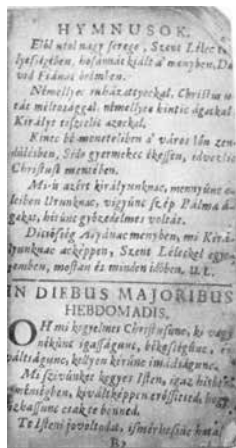 HYMNUSOK.
Elöl utol nagy serege, Szent Lélec
lyeségében, hosánnát kiált a' menyben, Da
vid Fiánac
Némellyec ruházattyockal, Christus u
tát méltósággal, némellyec kintic ágackal
Királyt tisztelic azockal.
Kinec bé-meneteliben a' város lön zen
dülésben, Sido gyermekec ékessen, idvezlic
Christust mentében.
Mi-is azért királyunknac, mennyünc e-
leiben Urunknac, vigyünc szép Pálma á-
gakat, hitünc gyözedelmes voltát.
Dicsöség Atyánac menyben, mi Kirá-
lyunknac acképpen, Szent Léleckel egye-
temben, mostan és minden idöben. U. L.
IN DIEBUS MAJORIBUS
HEBDOMADIS.
OH mi kegyelmes Christusunc, ki vagy
nékünc igasságunc, békeségünc,
váltságunc, kellyen kérünc imádságunc.
Mi szivünket kegyes Isten, igaz hitbe
reménségben, kiváltképpen erössitsed, hogy
bizhassunc csak te benned.
Te Isteni jovoltodat, ismérhessüc
B2